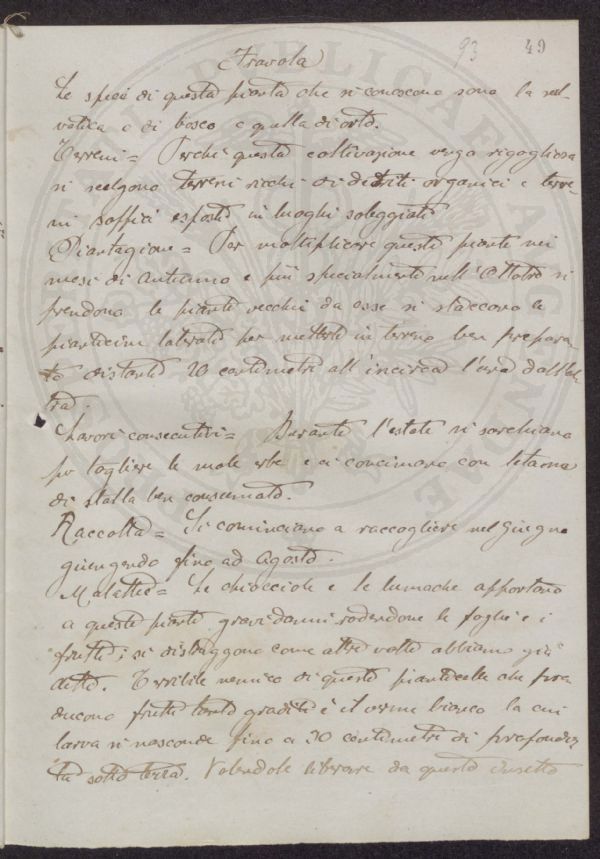 93 49
Fravola
Le spece di questa pianta che si conoscono sono la sel-
vatica o di bosco e quella di orto.
Terreni = Perchè questa coltivazione venga rigogliosa
si scelgono terreni ricchi di detriti organici e terre-
ni soffici esposti in luoghi soleggiati
Piantagione = Per moltiplicare queste piante nei
mesi di autunno e più specialmente nell'Ottobre si
prendono le piante vecchi da esse si staccono le
pianticine laterali per metterle in terreno ben prepara-
to distanti 20 centimetri all'incirca l'una dall'al-
tra.
Lavori consecutivi = Durante l'estate si sarchiano
per togliere le male erbe e si concimano con letame
di stalla ben consumato.
Raccolta = Si cominciano a raccogliere nel Giugno
giungendo fino ad Agosto.
Malattie = Le chiocciole e le lumache apportano
a queste piante gravi danni rodendone le foglie e i
frutti; si distruggono come altre volte abbiamo già
detto. Terribile nemico di queste pianticelle che pro
ducono frutti tanto graditi è il verme bianco la cui
larva si nasconde fino a 30 centimetri di profondi
tà sotto terra. Volendole liberare da questo insetto